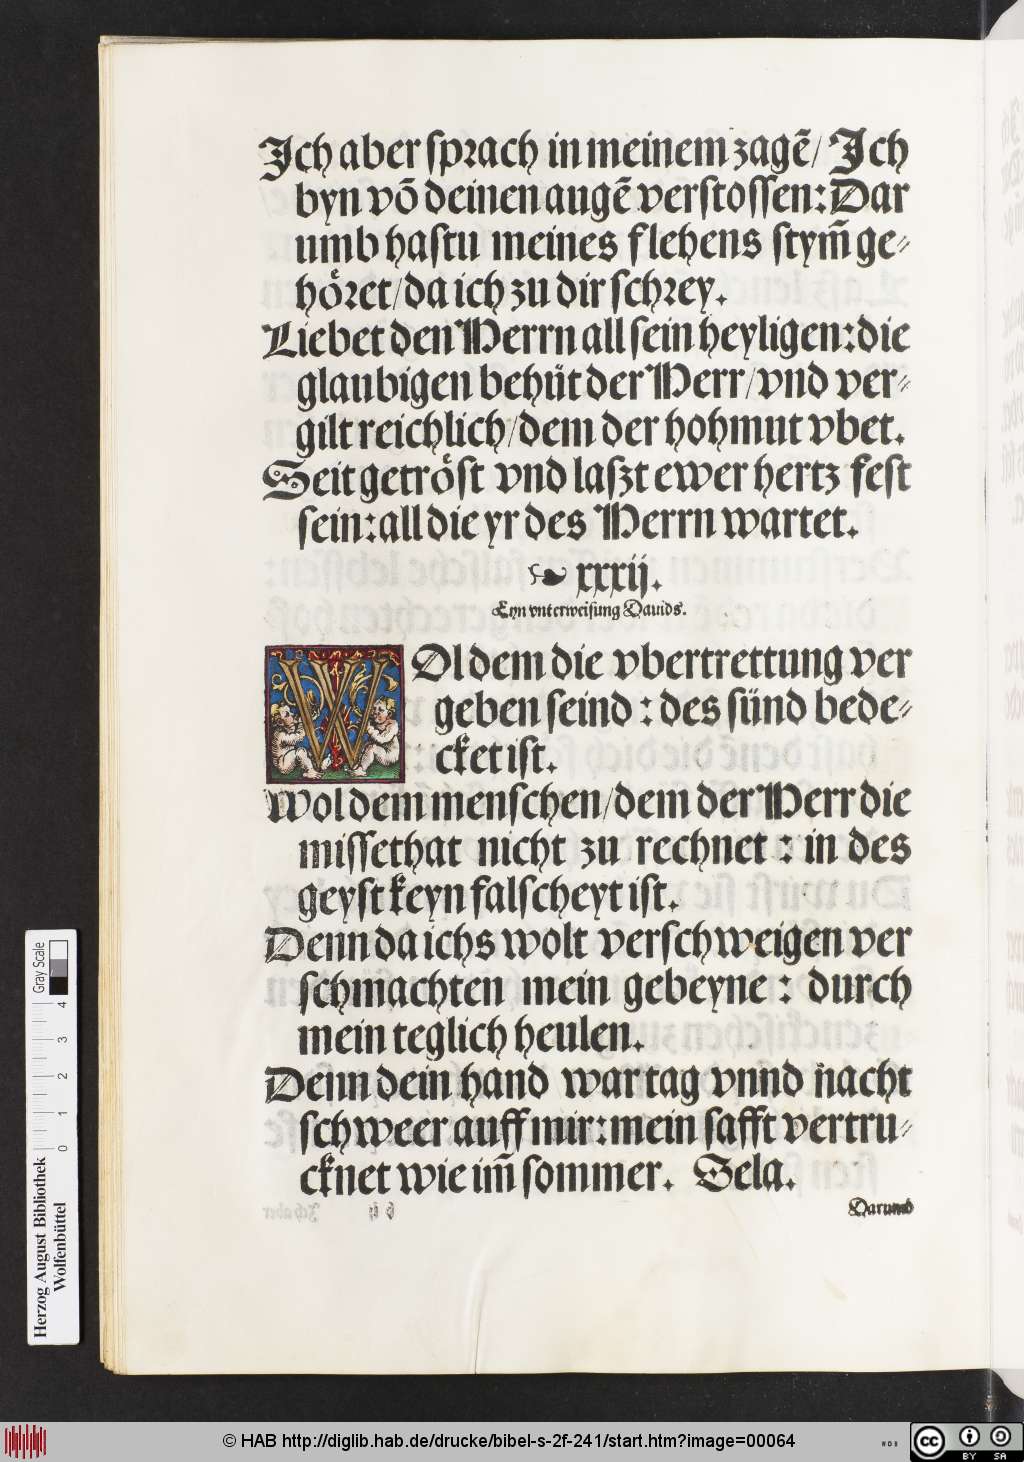 Ich aber sprach in meinem zagẽ/ Ich
byn võ deinen augẽ verstossen: Dar
umb hastu meines flehens stym̃ ge⸗
höret/ da ich zu dir schrey.
Liebet den Herrn all sein heyligen: die
glaubigen behüt der Herr/ vnd ver⸗
gilt reichlich/ dem der hohmut vbet.
Seit getröst vnd laszt ewer hertz fest
sein: all die yr des Herrn wartet.
xxxij.
Eyn vnterweisung Dauids.
WOl dem die vbertrettung ver
geben seind: des sünd bede⸗
cket ist.
Wol dem menschen/ dem der Herr die
missethat nicht zu rechnet: in des
geyst keyn falscheyt ist.
Denn da ichs wolt verschweigen ver
schmachten mein gebeyne: durch
mein teglich heulen.
Denn dein hand war tag vnnd nacht
schweer auff mir: mein safft vertru⸗
cknet wie im̃ sommer. Sela.
Darumb
Herzog August Bibliothek
Wolfenbüttel
0 1 2 3 4
Gray Scale
© HAB http://diglib.hab.de/drucke/bibel-s-2f-241/start.htm?image=00064
WDB
cc BY SA